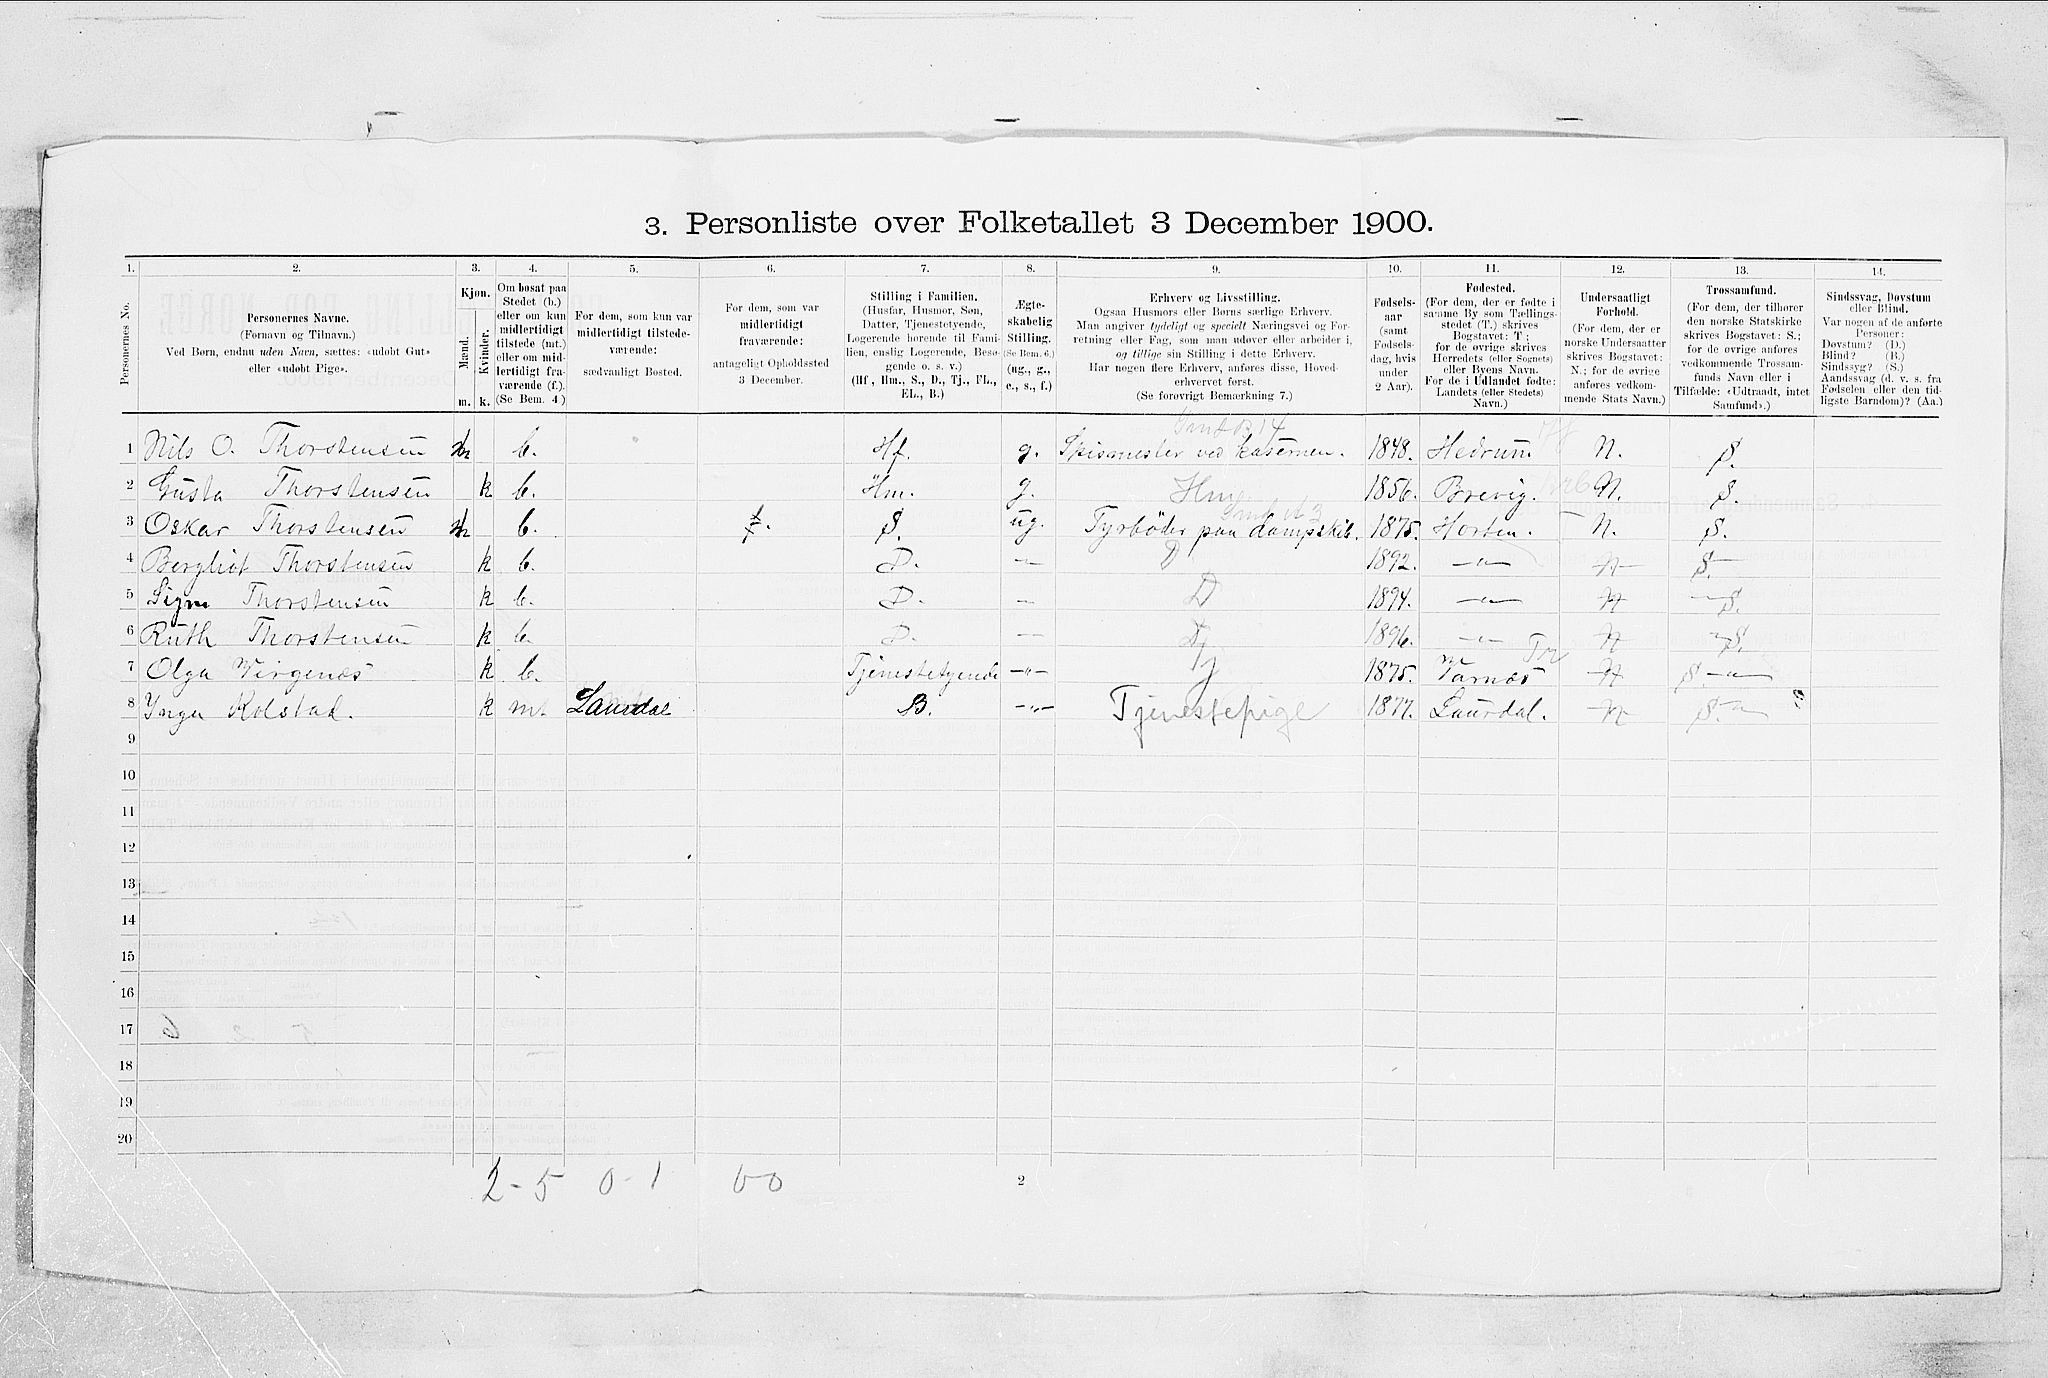 3. Personliste over Folketallet 3 December 1900.
1. 2. 3. 4. 5. 6. 7. 8. 9. 10. 11. 12. 13. 14.
Personernes No.
Personernes Navne.
(Fornavn og Tilnavn.)
Ved Børn, endnu uden Navn, sættes: «udøbt Gut»
eller «udøbt Pige».
Kjøn.
Mænd.
Kvinder.
m. k.
Om bosat paa
Stedet (b.)
eller om kun
midlertidigt
tilstede (mt.)
eller om mid-
lertidigt fra-
værende (f.).
(Se Bem. 4.)
For dem, som kun var
midlertidigt tilstede-
værende:
sædvanligt Bosted.
For dem, som var
midlertidigt
fraværende:
antageligt Opholdssted
3 December.
Stilling i Familien.
(Husfar, Husmor, Søn,
Datter, Tjenestetyende,
Logerende hørende til Fami-
lien, enslig Logerende, Besø-
gende o. s. v.)
(Hf., Hm., S., D., Tj., FL.,
EL., B.)
Ægte-
skabelig
Stilling.
(Se Bem. 6.)
(ug., g.,
e., s., f.)
Erhverv og Livsstilling.
Ogsaa Husmors eller Børns særlige Erhverv.
Man angiver tydeligt og specielt Næringsvei og For-
retning eller Fag, som man udøver eller arbeider i,
og tillige sin Stilling i dette Erhverv.
Har nogen flere Erhverv, anføres disse, Hoved-
erhvervet først.
(Se forøvrigt Bemærkning 7.)
Fødsels-
aar
(samt
Fødsels-
dag, hvis
under
2 Aar).
Fødested.
(For dem, der er fødte i
samme By som Tællings-
stedet (T.) skrives
Bogstavet: T;
for de øvrige skrives
Herredets (eller Sognets)
eller Byens Navn.
For de i Udlandet fødte:
Landets (eller Stedets)
Navn.)
Undersaatligt
Forhold.
(For dem, der er
norske Undersaatter
skrives Bogstavet:
N.; for de øvrige
anføres vedkom-
mende Stats Navn.)
Trossamfund.
(For dem, der tilhører
den norske Statskirke
skrives Bogstavet: S.;
for de øvrige anføres
vedkommende Trossam-
funds Navn eller i
Tilfælde: «Udtraadt, intet
Samfund».)
Sindssvag, Døvstum
eller Blind.
Var nogen af de anførte
Personer:
Døvstum? (D.)
Blind? (B.)
Sindssyg? (S.)
Aandssvag (d. v. s. fra
Fødselen eller den tid-
ligste Barndom)? (Aa.)
1 Nils O. Thorstensen m b. Hf. g. Spismester ved kasernen. 1848. Hedrum N. S.
2 Gusta Thorstensen k b. Hm. g. Hm 1856. Brevig. N. S.
3 Oskar Thorstensen m b. S. ug. Fyrbøder paa dampskib. 1875. Horten. N. S.
4 Bergliot Thorstensen k b. D. — D 1892. —"— N S.
5 Signe Thorstensen k b. D. — D 1894. —"— N S.
6 Ruth Thorstensen k b. D. — 1896. —"— N S.
7 Olga Virgenæs k b. Tjenestetyende —"— Tj 1875. Varnæs N S. —"—
8 Inga Kolstad. k mt. Laurdal B. —"— Tjenestepige 1877. Laurdal. N S. —"—
9
10
11
12
13
14
15
16
17
18
19
20
2 - 5 0 - 1
2